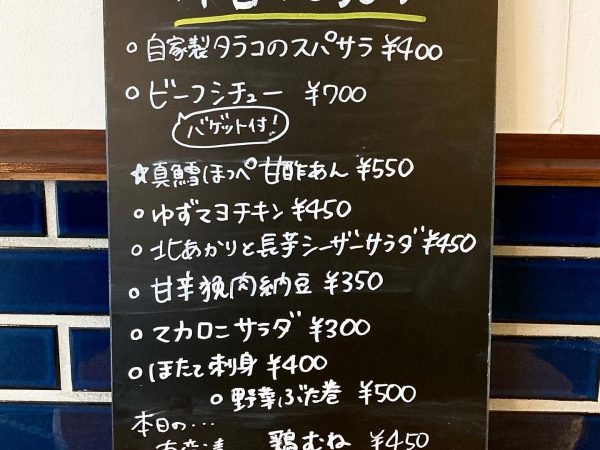 自家製タラコのスパサラ ¥400
ビーフシチュー ¥700
バゲット付!
☆真鱈ほっぺ甘酢あん ¥550
ゆずマヨチキン ¥450
北あかりと長芋シーザーサラダ ¥450
甘辛挽肉納豆 ¥350
マカロニサラダ ¥300
ほたて刺身 ¥400
野菜ぶた巻 ¥500
本日の...
鶏むね ¥450